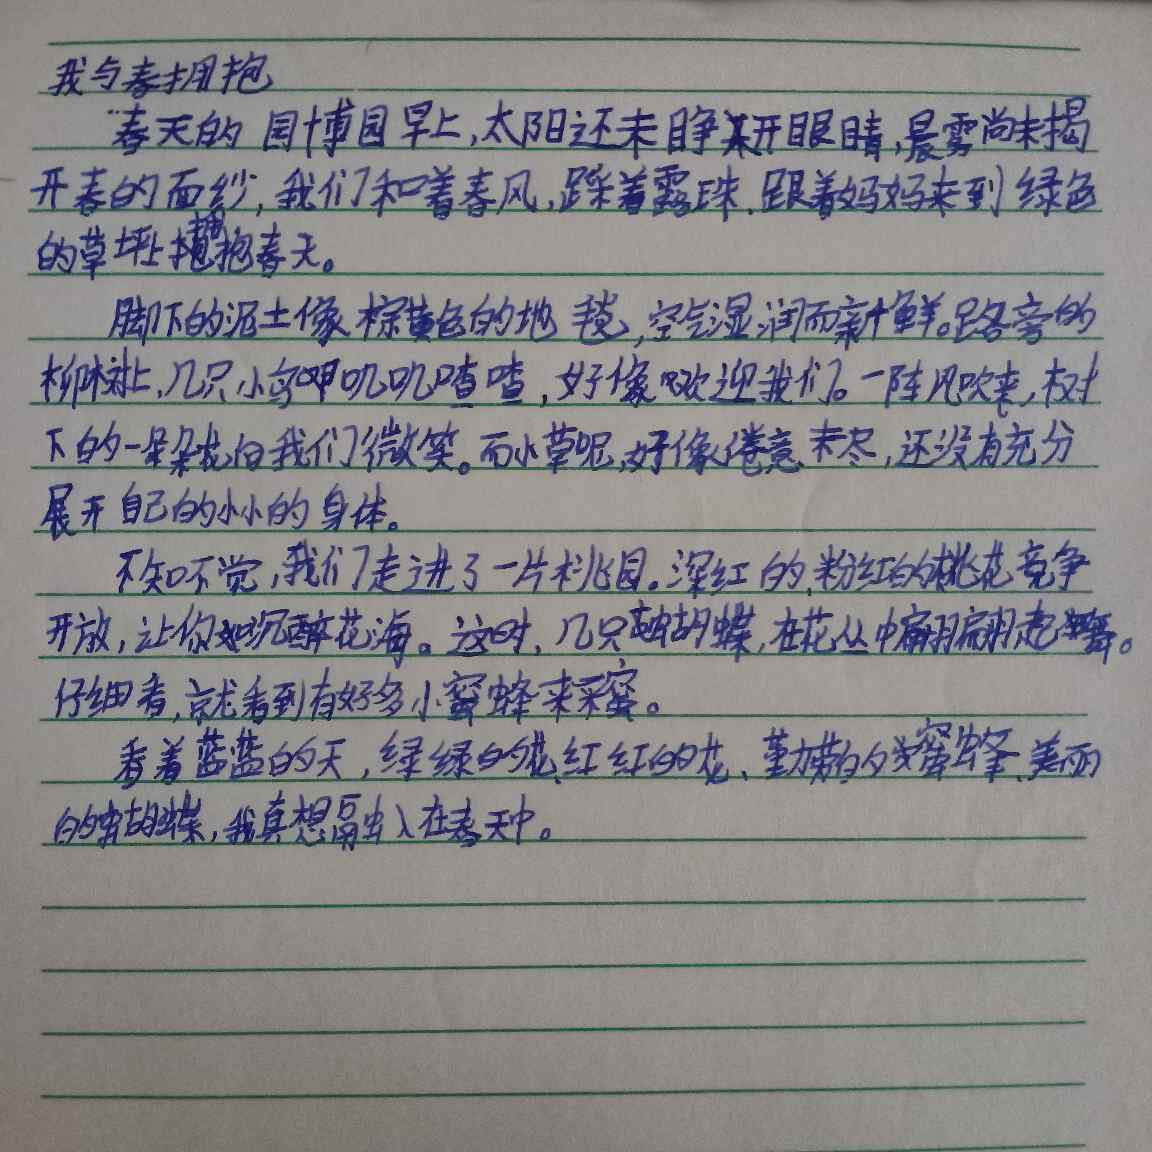 我与春拥抱
春天的园博园早上,太阳还未睁开眼睛,晨雾尚未揭
开春的面纱,我们和着春风,踩着露珠,跟着妈妈来到绿色
的草坪上拥抱春天。
脚下的泥土像棕黄色的地毯,空气湿润而新鲜。路旁的
柳树上,几只小鸟叽叽喳喳,好像欢迎我们。一阵风吹来,树
下的一朵朵花向我们微笑。而小草呢,好像倦意未尽,还没有充分
展开自己的小小的身体。
不知不觉,我们走进了一片桃园。深红的,粉红的桃花竞争
开放,让你如沉醉花海。这时,几只蝴蝶,在花丛中翩翩起舞。
仔细看,就看到有好多小蜜蜂来采蜜。
看着蓝蓝的天,绿绿的,红红的花、勤劳的蜜蜂、美丽
的蝴蝶,我真想融入在春天中。